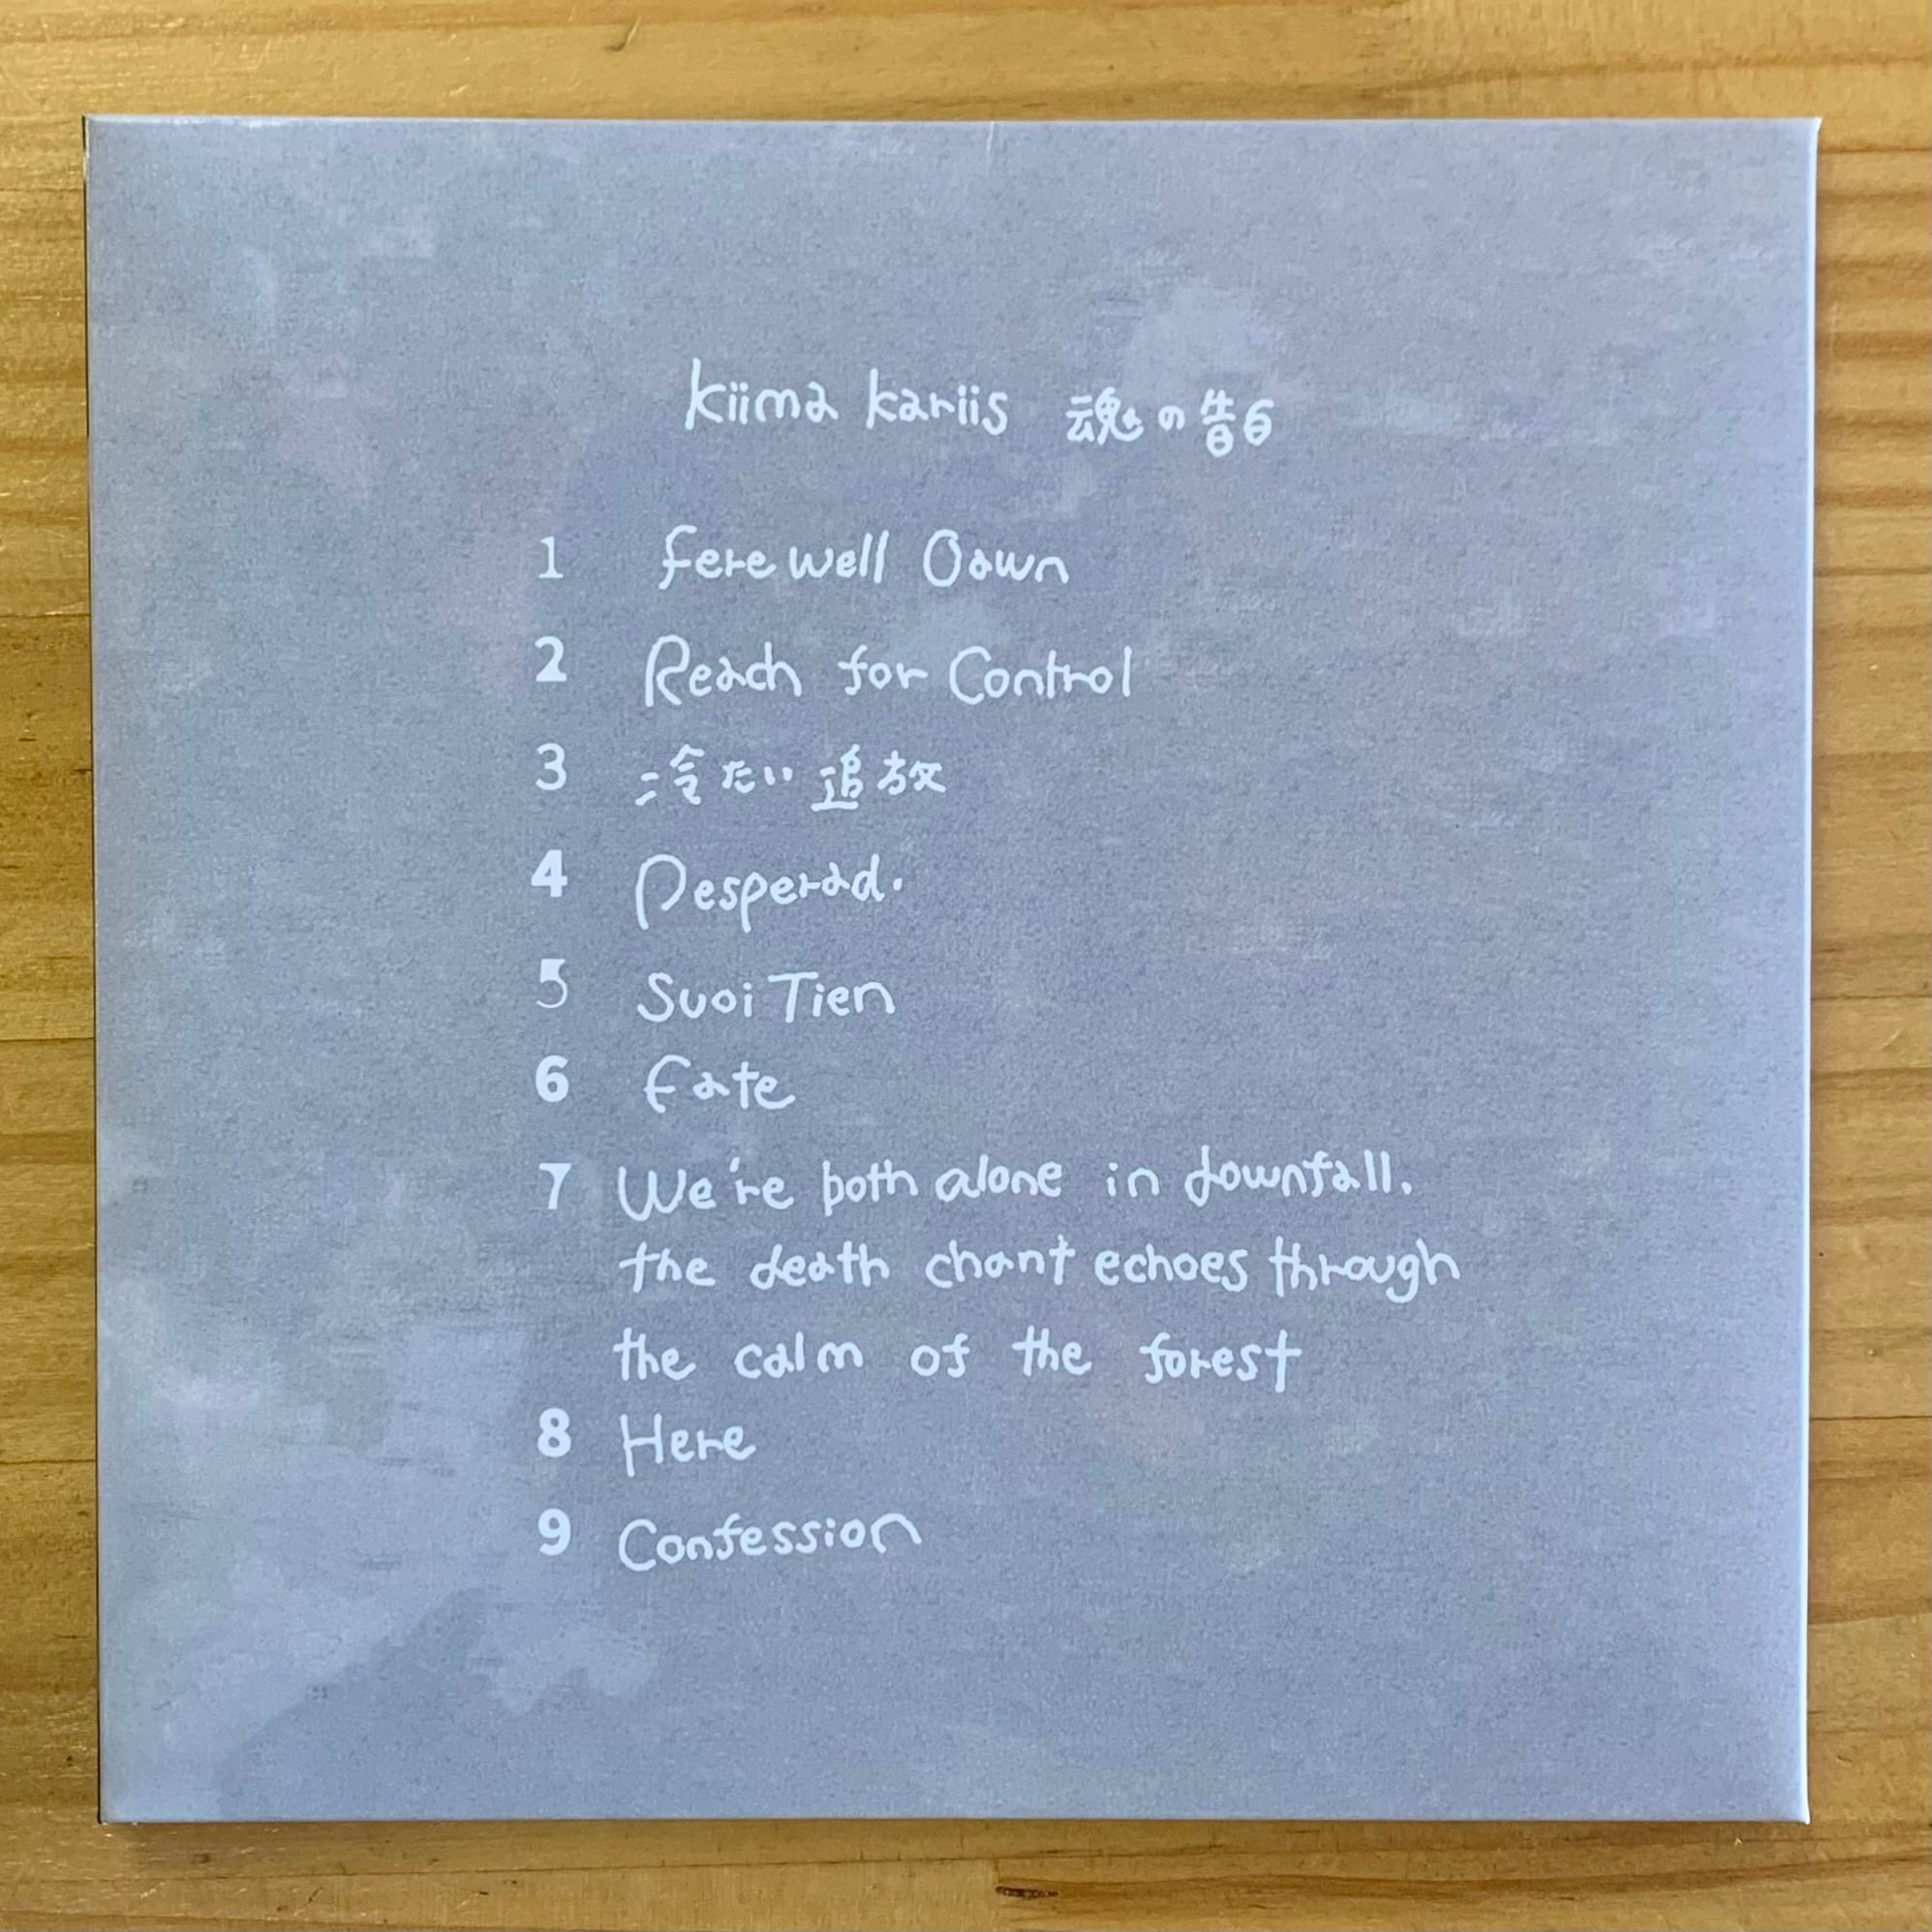 kiima kariis 魂の告白
1 ferewell Dawn
2 Reach for Control
3 冷たい追放
4 Desperad.
5 Suoi Tien
6 fate
7 We're both alone in downfall.
the death chant echoes through
the calm of the forest
8 Here
9 Confession